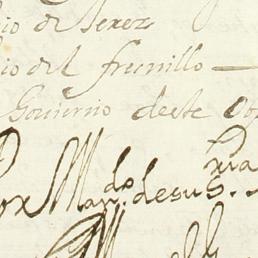 io de Jerez
io del fresnillo
Govierno deste Ob
Por Mando. de su S.ria